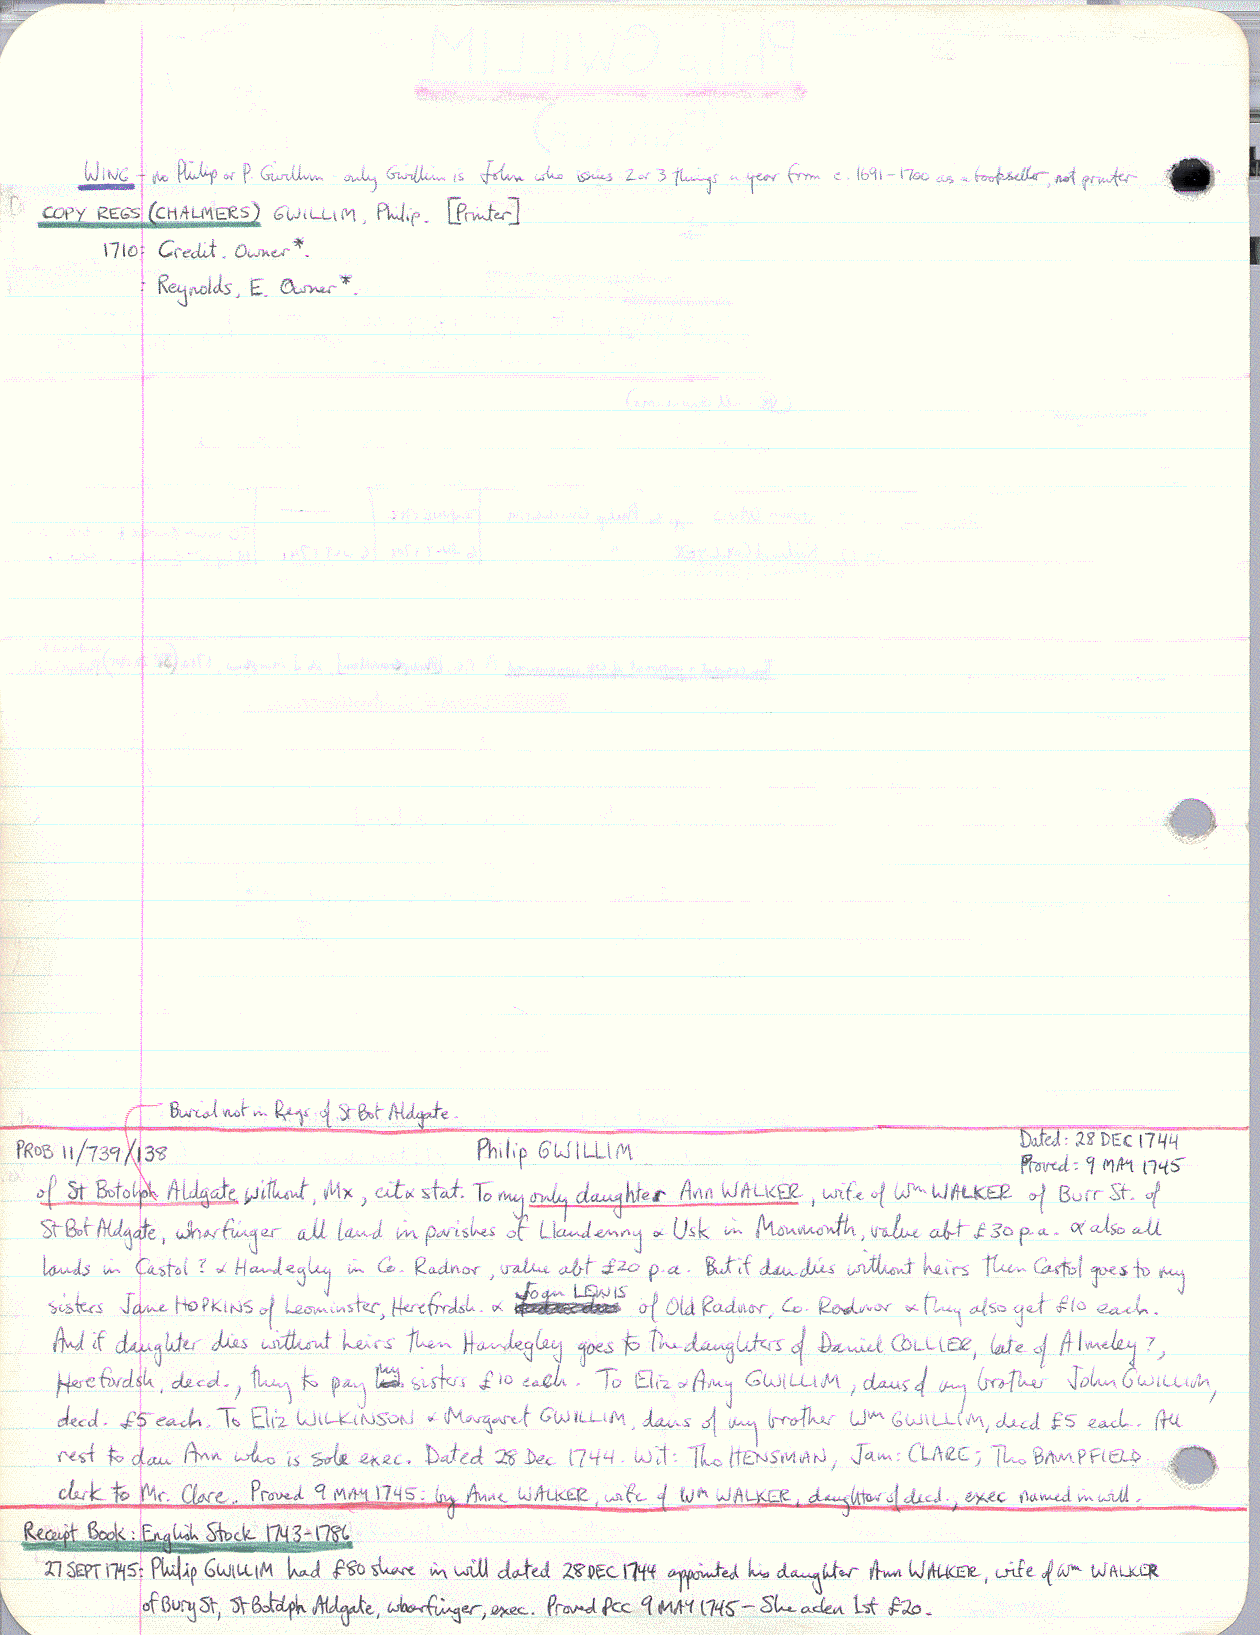 WING - no Philip or P. Gwillim only Gwillim is John who issues 2 or 3 things a year from c. 1691-1700 as a bookseller, not printer
COPY REGS (CHALMERS) GWILLIM, Philip. [Printer]
1710: Credit. Owner*.
: Reynolds, E. Owner*.
Burial not in Regs of St Bot Aldgate.
PROB 11/739/138 Philip GWILLIM Dated: 28 DEC 1744
Proved: 9 MAY 1745
of St Botolph Aldgate without, Mx, cit & stat. To my only daughter Ann WALKER, wife of Wm WALKER of Burr St. of
St Bot Aldgate, wharfinger all land in parishes of Llandenny & Usk in Monmonth, value abt £30 p.a. & also all
lands in Castol? & Handegley in Co. Radnor, value abt £20 p.a. But if dau dies without heirs then Castol goes to my
sisters Jane HOPKINS of Leominster, Herefordsh. & Joan LEWIS of Old Radnor, Co. Radnor & they also get £10 each.
And if daughter dies without heirs then Handegley goes to the daughters of Daniel COLLIER, late of Almeley?,
Herefordsh, decd., they to pay my sisters £10 each. To Eliz & Amy GWILLIM, daus of my brother John GWILLIM,
decd. £5 each. To Eliz WILKINSON & Margaret GWILLIM, daus of my brother Wm GWILLIM, decd £5 each. All
rest to dau Ann who is sole exec. Dated 28 Dec 1744. Wit: Tho HENSMAN, Jam: CLARE; Tho BAMPFIELD
clerk to Mr. Clare. Proved 9 MAY 1745: by Anne WALKER, wife of Wm WALKER, daughter of decd., exec named in will.
Receipt Book: English Stock 1743-1786
27 SEPT 1745: Philip GWILLIM had £80 share in will dated 28 DEC 1744 appointed his daughter Ann WALKER, wife of Wm WALKER
of Bury St, St Botolph Aldgate, wharfinger, exec. Proved PCC 9 MAY 1745 - She 1st £20.